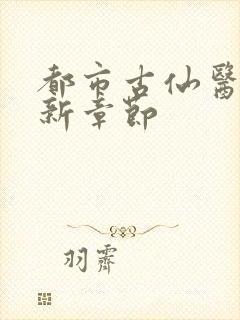 都市古仙醫
新章節
羽霽